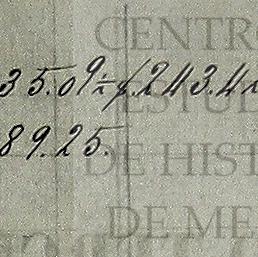 CENTRO
35.09 ÷ 243.4
ESTUD
89.25.
DE HIST
DE ME